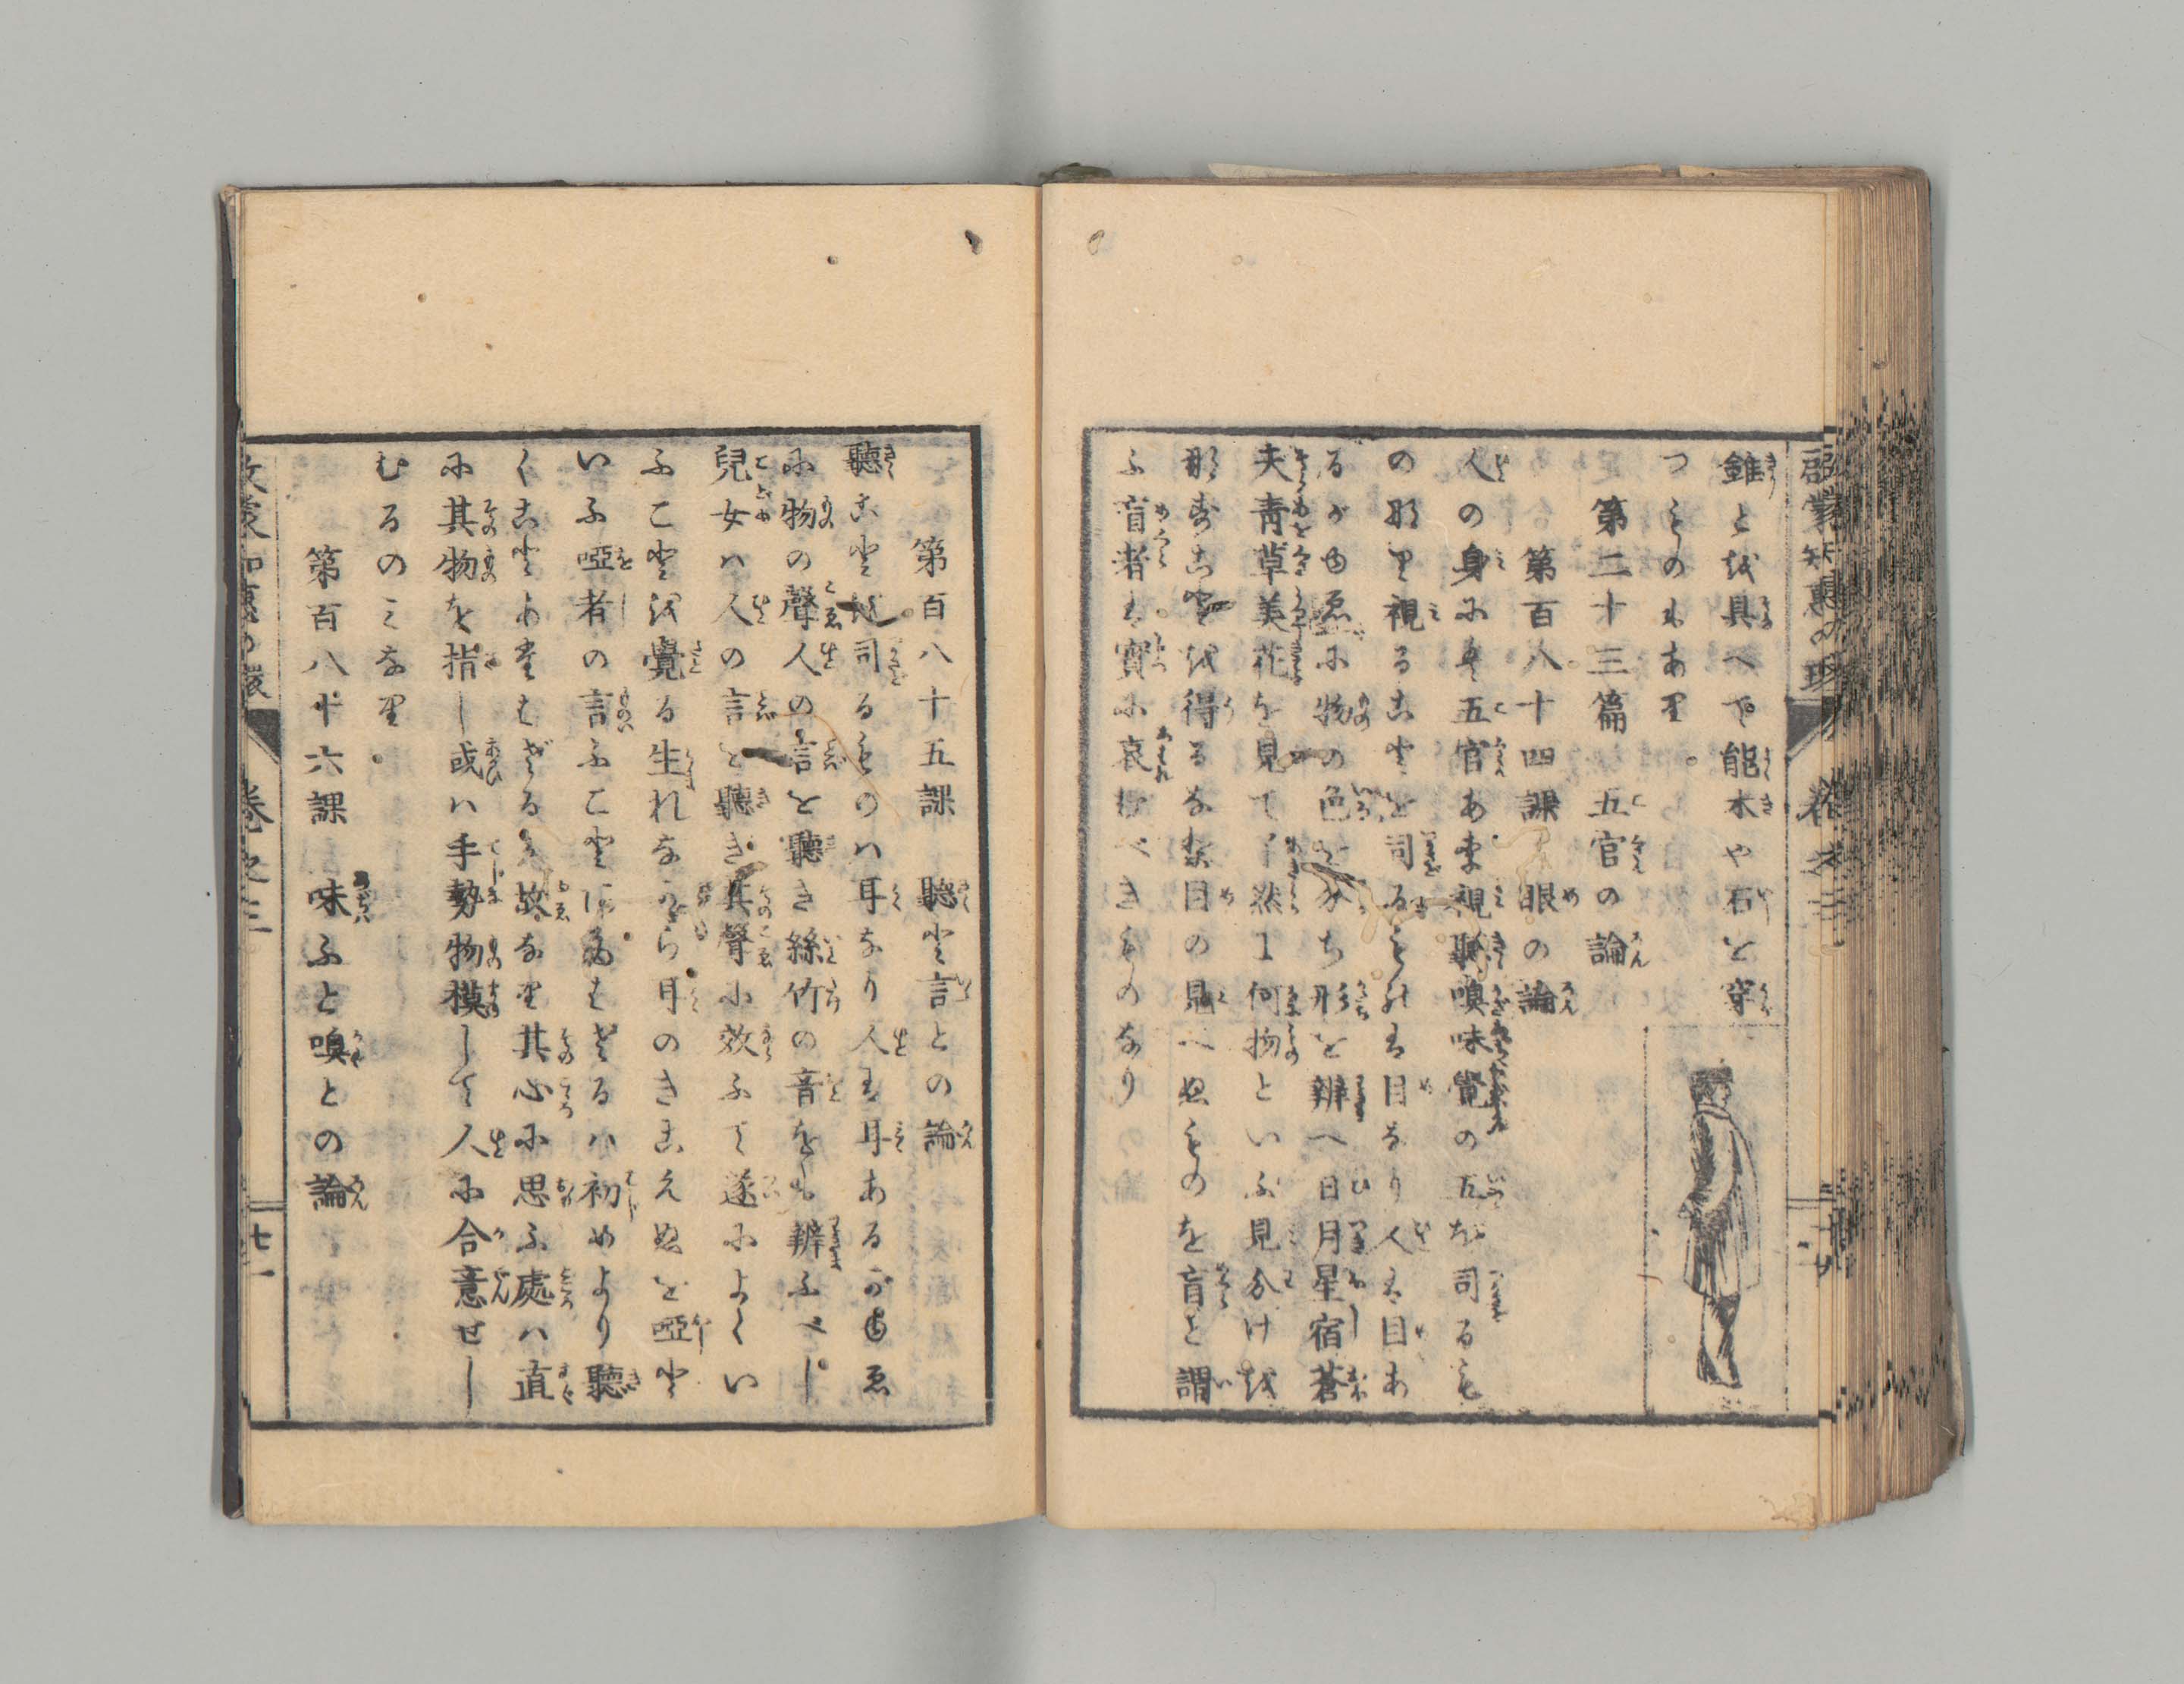 啓蒙知慧の環
卷之三
錐とを具へて能木や石を穿
つものもあり
第二十三篇 五官の論
第百八十四課 眼の論
人の身に五官あり視聽嗅味覺の五を司るも
のなり視ることを司るものは目なり人は目あ
るがゆゑに物の色を分ち形を辨へ日月星宿蒼
天青草美花を見て了然に何物といふ見分けを
なすことを得るなり若目の見へぬものを盲と謂
ふ盲者は實に哀むべきものなり
第百八十五課 聽と言との論
聽ことを司るものハ耳なり人は耳あるがゆゑ
に物の聲人の言を聽き絲竹の音をも辨ふべし
兒女ハ人の言を聽き其聲に效ふて遂によくい
ふことを覺る生れながら耳のきこえぬを啞と
いふ啞者の言ふことにあたはざるハ初めより聽
くことあたはざるが故なり其心に思ふ處ハ直
に其物を指し或ハ手勢物模して人に合意せし
むるのみなり
第百八十六課 味ふと嗅との論
啓蒙知慧の環
卷之三
七一